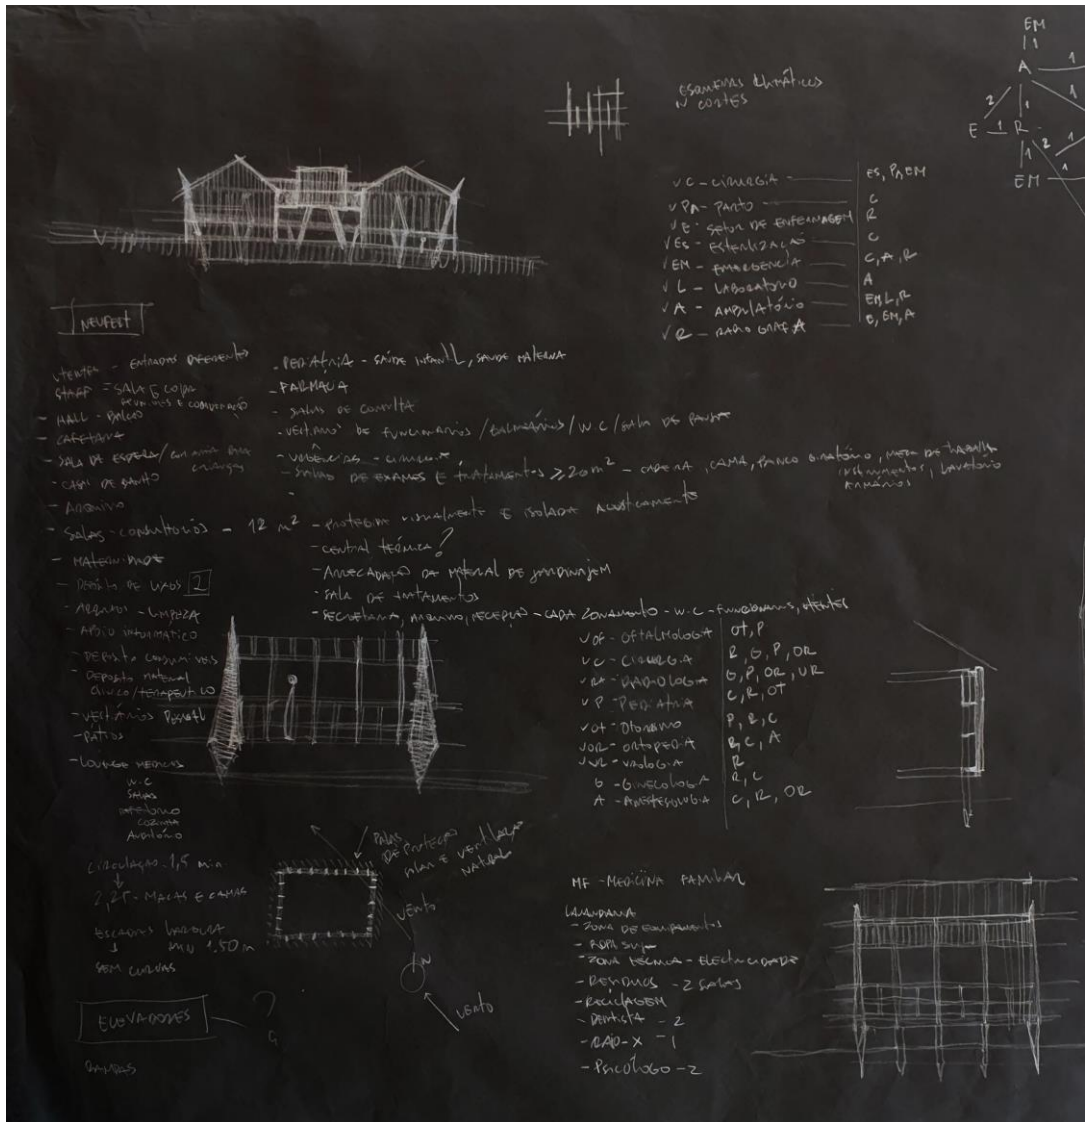 EM
1
A
1
1
2
1
E 1 R
2
1
1
EM
1
ESQUEMAS CLIMÁTICOS
N CORTES
VC - CIRURGIA - ES, PA, EM
VPA - PARTO - C
VE - SETOR DE ENFERMAGEM R
VES - ESTERILIZAÇÃO - C
VEM - EMERGÊNCIA - C, A, R
VL - LABORATÓRIO - A
VA - AMBULATÓRIO - EM, L, R
VR - RADIO GRAFIA E, EM, A
NEUFERT
UTENTES - ENTRADAS DIFERENTES
STAFF = SALA E COPA
- HALL - BALCÃO
- CAFETARIA
- SALA DE ESPERA / CRIANÇAS
- CASA DE BANHO
- ARQUIVO
- SALAS - CONSULTÓRIOS = 12 m²
- MATERNIDADE
- DEPÓSITO DE LIXOS 2
- ARRUMOS - LIMPEZA
- APOIO INFORMÁTICO
- DEPÓSITO CONSUMÍVEIS
- DEPOSITO MATERIAL
CLÍNICO / TERAPEUTICO
- VESTIÁRIOS PESSOAL
- PATIOS
- LOUNGE MEDICOS
W.C
SALAS
COZINHA
AUDITÓRIO
- PEDIATRIA - SAÚDE INFANTIL, SAUDE MATERNA
- FARMACIA
- SALAS DE CONSULTA
- VESTIARIOS DE FUNCIONARIOS / BALNEÁRIOS / W.C / SALA DE PAUSA
- URGÊNCIAS - CIRURGIA
- DE EXAMES E TRATAMENTOS ≥ 20 m² - CADEIRA, CAMA, BANCO GIRATÓRIO, MESA DE TRABALHO
INSTRUMENTOS, LAVATORIO
ARMÁRIOS
- PROTEGIDA VISUALMENTE E ISOLADA ACUSTICAMENTE
- CENTRAL TÉRMICA?
- ARRECADAÇÃO DE MATERIAL DE JARDINAJEM
- SALA DE TRATAMENTOS
- SECRETARIA, ARQUIVO, RECEPÇÃO - CADA ZONAMENTO - W.C - FUNCIONARIOS, UTENTES
VOF - OFTALMOLOGIA OT, P
VC - CIRURGIA R, G, P, OR
VRA - RADIOLOGIA G, P, OR, UR
VP - PEDIATRIA C, R, OT
VOT - OTORRINO P, R, C
VOR - ORTOPEDIA R, C, A
VUR - UROLOGIA R
G - GINECOLOGIA R, C
A - ANESTESOLOGIA C, R, OR
CIRCULAÇÃO - 1,5 min.
2,25 - MACAS E CAMAS
ESCADAS LARGURA
MIN 1.50 m
SEM CURVAS
ELEVADORES
?
RAMPAS
PALAS
DE PROTEÇÃO
SOLAR E VENTILAÇÃO
NATURAL
VENTO
N
VENTO
MF - MEDICINA FAMILIAR
LAVANDARIA
- ZONA DE EQUIPAMENTOS
- ZONA TECNICA - ELECTRICIDADE
- RESIDUOS - 2 SALAS
- RECICLAGEM
- DENTISTA - 2
- RAIO-X - 1
- PSICÓLOGO - 2